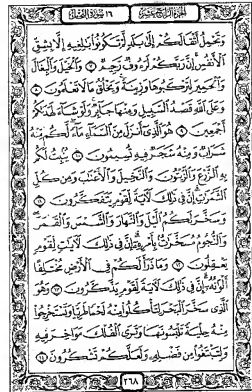 الجزء الرابع عشر ١٦ سورة النحل
وَتَحْمِلُ أَثْقَالَكُمْ إِلَىٰ بَلَدٍ لَّمْ تَكُونُوا۟ بَٰلِغِيهِ إِلَّا بِشِقِّ
ٱلْأَنفُسِ إِنَّ رَبَّكُمْ لَرَءُوفٌ رَّحِيمٌ ٧ وَٱلْخَيْلَ وَٱلْبِغَالَ
وَٱلْحَمِيرَ لِتَرْكَبُوهَا وَزِينَةً وَيَخْلُقُ مَا لَا تَعْلَمُونَ ٨
وَعَلَى ٱللَّهِ قَصْدُ ٱلسَّبِيلِ وَمِنْهَا جَآئِرٌ وَلَوْ شَآءَ لَهَدَىٰكُمْ
أَجْمَعِينَ ٩ هُوَ ٱلَّذِىٓ أَنزَلَ مِنَ ٱلسَّمَآءِ مَآءً لَّكُم مِّنْهُ
شَرَابٌ وَمِنْهُ شَجَرٌ فِيهِ تُسِيمُونَ ١٠ يُنۢبِتُ لَكُم
بِهِ ٱلزَّرْعَ وَٱلزَّيْتُونَ وَٱلنَّخِيلَ وَٱلْأَعْنَٰبَ وَمِن كُلِّ
ٱلثَّمَرَٰتِ إِنَّ فِى ذَٰلِكَ لَءَايَةً لِّقَوْمٍ يَتَفَكَّرُونَ ١١
وَسَخَّرَ لَكُمُ ٱلَّيْلَ وَٱلنَّهَارَ وَٱلشَّمْسَ وَٱلْقَمَرَ
وَٱلنُّجُومُ مُسَخَّرَٰتٌۢ بِأَمْرِهِۦٓ إِنَّ فِى ذَٰلِكَ لَءَايَٰتٍ لِّقَوْمٍ
يَعْقِلُونَ ١٢ وَمَا ذَرَأَ لَكُمْ فِى ٱلْأَرْضِ مُخْتَلِفًا
أَلْوَٰنُهُۥٓ إِنَّ فِى ذَٰلِكَ لَءَايَةً لِّقَوْمٍ يَذَّكَّرُونَ ١٣ وَهُوَ
ٱلَّذِى سَخَّرَ ٱلْبَحْرَ لِتَأْكُلُوا۟ مِنْهُ لَحْمًا طَرِيًّا وَتَسْتَخْرِجُوا۟
مِنْهُ حِلْيَةً تَلْبَسُونَهَا وَتَرَى ٱلْفُلْكَ مَوَاخِرَ فِيهِ
وَلِتَبْتَغُوا۟ مِن فَضْلِهِۦ وَلَعَلَّكُمْ تَشْكُرُونَ ١٤
٢٦٨